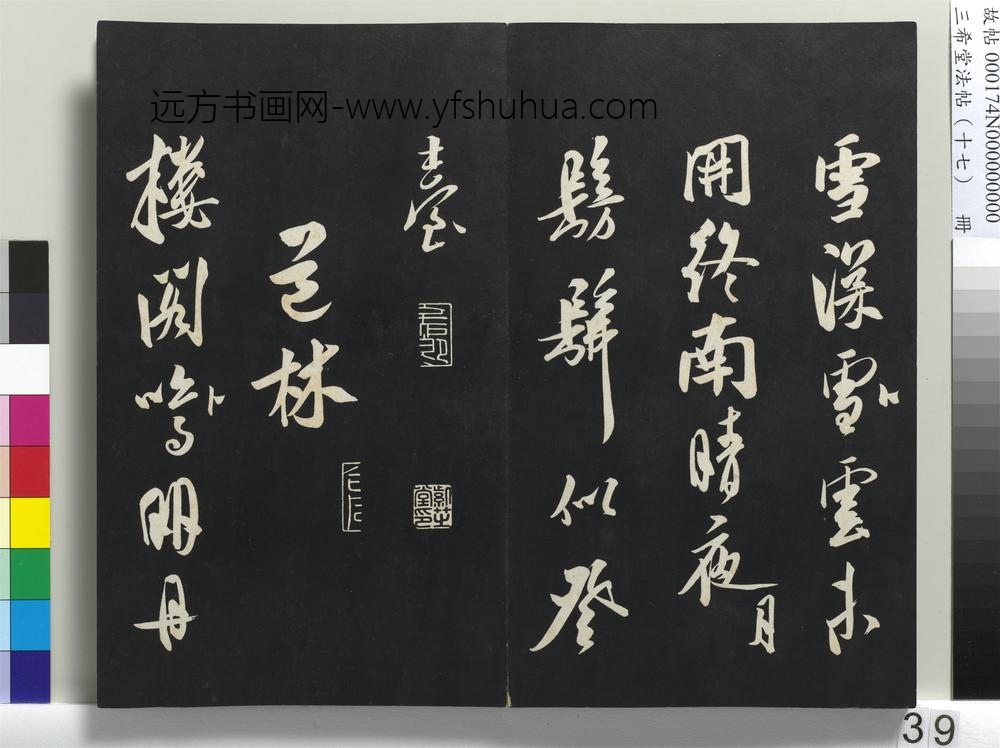 远方书画网-www.yfshuhua.com
雪深雪雲未
開終南晴夜月
髣髴似登
臺
道林
樓閣鳴明丹
故帖 000174N000000000
三希堂法帖（十七） 册
39